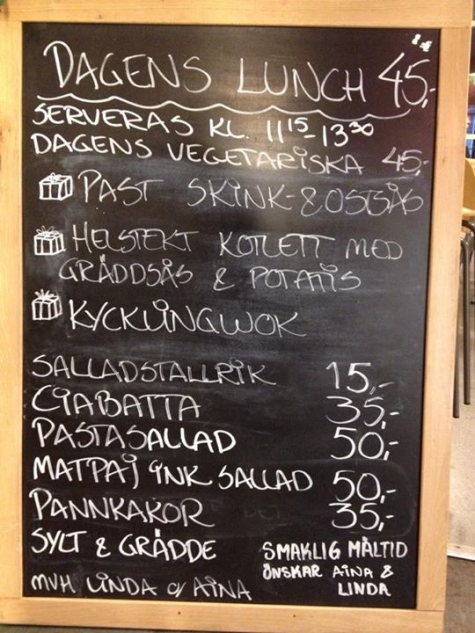 DAGENS LUNCH 45,-
SERVERAS KL. 11¹⁵-13³⁰
DAGENS VEGETARISKA 45,-
PAST SKINK-& OSTSÅS
HELSTEKT KOTLETT MED
GRÄDDSÅS & POTATIS
KYCKLINGWOK
SALLADSTALLRIK 15,-
CIABATTA 35,-
PASTASALLAD 50,-
MATPAJ INK SALLAD 50,-
PANNKAKOR 35,-
SYLT & GRÄDDE
SMAKLIG MÅLTID
ÖNSKAR AINA &
LINDA
MVH LINDA O/ AINA